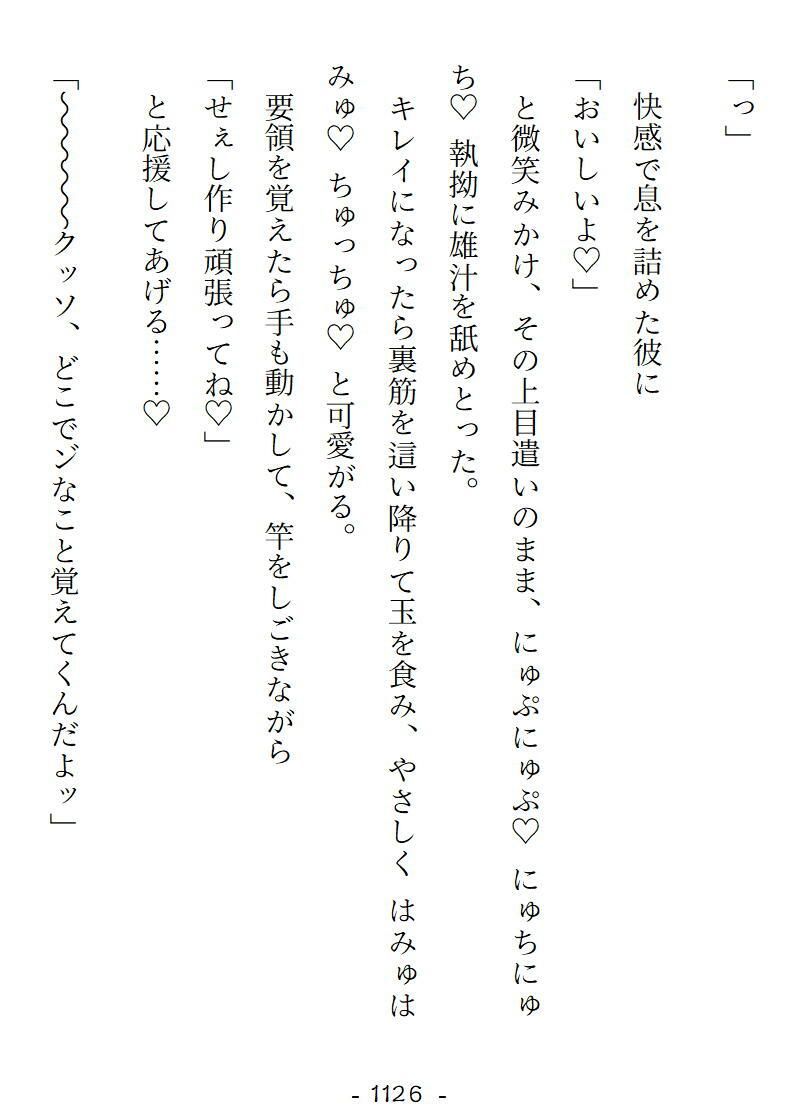 「っ」
快感で息を詰めた彼に
「おいしいよ♡」
と微笑みかけ、その上目遣いのまま、にゅぷにゅぷ♡ にゅちにゅ
ち♡ 執拗に雄汁を舐めとった。
キレイになったら裏筋を這い降りて玉を食み、やさしく はみゅは
みゅ♡ ちゅっちゅ♡ と可愛がる。
要領を覚えたら手も動かして、竿をしごきながら
「せぇし作り頑張ってね♡」
と応援してあげる……♡
「～～～～～クッソ、どこでンなこと覚えてくんだよッ」
- 1126 -